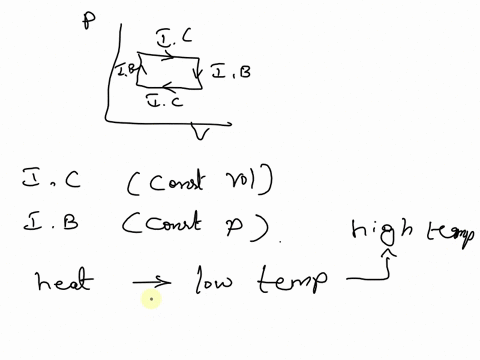 P
I.C
I.B
I.B
I.C
V
I.C (Const vol)
I.B (Const p).
high temp
heat → low temp